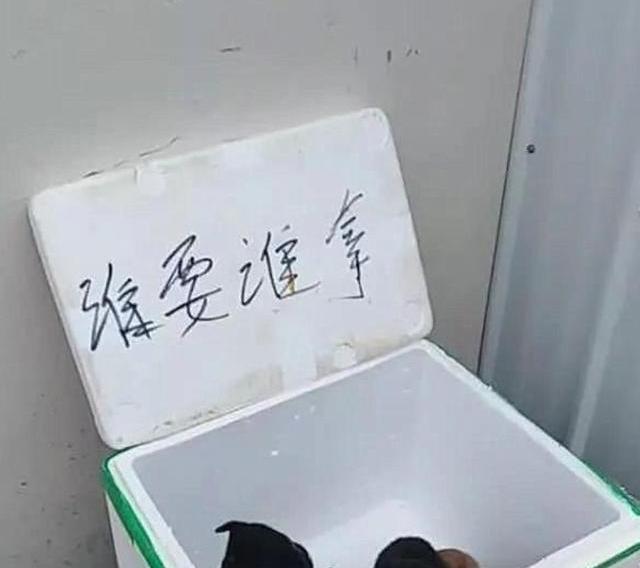 谁要谁拿